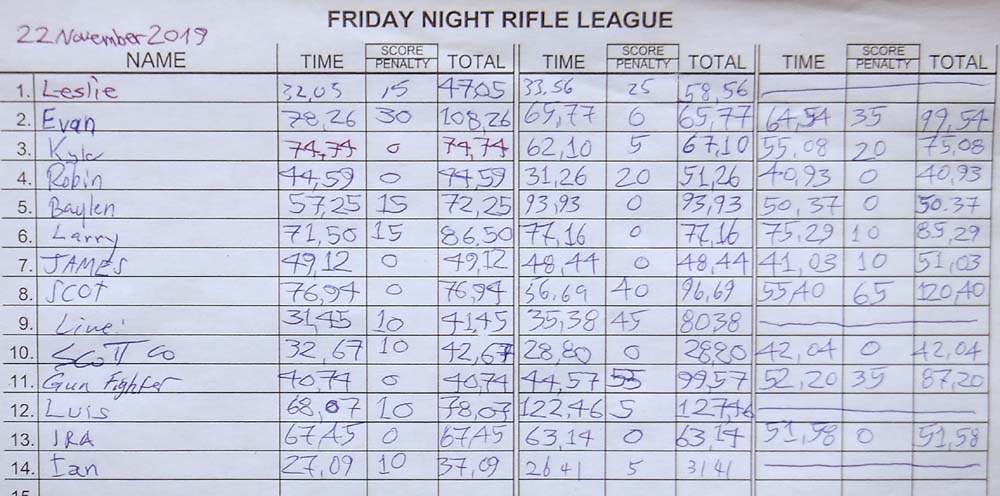 FRIDAY NIGHT RIFLE LEAGUE
22 November 2019
NAME TIME SCORE PENALTY TOTAL TIME SCORE PENALTY TOTAL TIME SCORE PENALTY TOTAL
1. Leslie 32,05 15 47,05 33.56 25 58,56
2. Evan 78,26 30 108,26 65,77 0 65,77 64,54 35 99,54
3. Kyle 74,74 0 74,74 62,10 5 67,10 55,08 20 75,08
4. Robin 44,59 0 44,59 31,26 20 51,26 40,93 0 40,93
5. Baylen 57,25 15 72,25 93,93 0 93,93 50,37 0 50.37
6. Larry 71,50 15 86,50 77,16 0 77,16 75,29 10 85,29
7. JAMES 49,12 0 49,12 48,44 0 48,44 41,03 10 51,03
8. SCOT 76,94 0 76,94 56,69 40 96,69 55,40 65 120,40
9. 31,45 10 41,45 35,38 45 8038
10. SCOTT CO 32,67 10 42,67 28,80 0 28,80 42,04 0 42,04
11. Gun Fighter 40,74 0 40,74 44,57 55 99,57 52,20 35 87,20
12. Luis 68,07 10 78,07 122,46 5 127,46
13. IRA 67,45 0 67,45 63,14 0 63,14 51,58 0 51,58
14. Ian 27,09 10 37,09 26 41 5 31 41